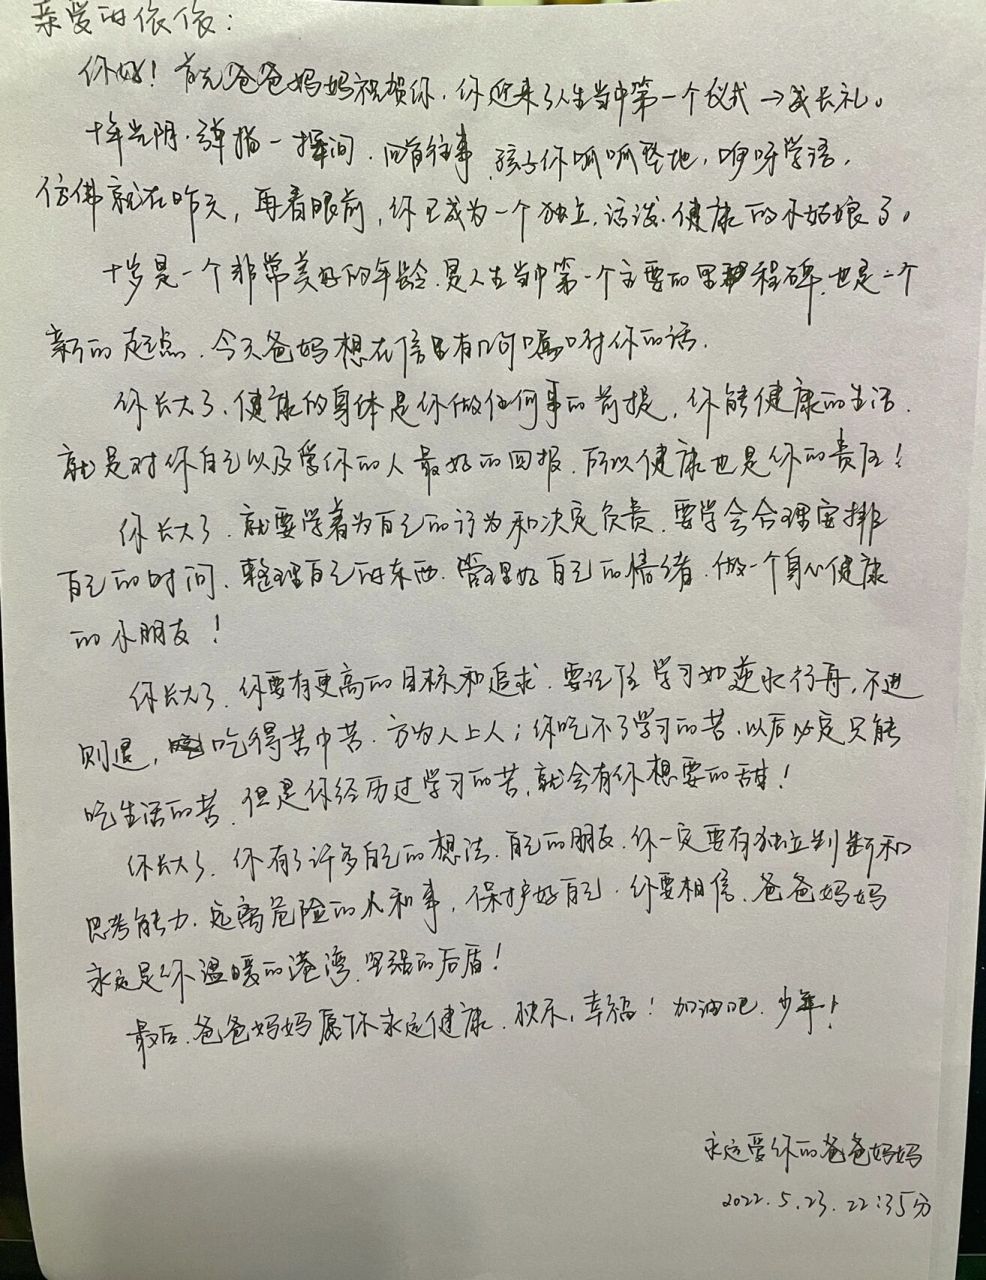 亲爱的依依:
你好！首先爸爸妈妈祝贺你，你迎来了人生当中第一个仪式→成长礼。
十年光阴，弹指一挥间，回首往事，孩子你呱呱坠地，咿呀学语，
仿佛就在昨天，再看眼前，你已成为一个独立、活泼、健康的小姑娘了。
十岁是一个非常美好的年龄，是人生当中第一个主要的里程碑，也是一个
新的起点，今天爸妈想在信里有几句嘱咐对你的话。
你长大了，健康的身体是你做任何事的前提，你能健康的生活，
就是对你自己以及爱你的人最好的回报，所以健康也是你的责任！
你长大了，就要学着为自己的行为和决定负责，要学会合理安排
自己的时间、整理自己的东西、管理好自己的情绪，做一个身心健康
的小朋友！
你长大了，你要有更高的目标和追求，要记住学习如逆水行舟，不进
则退，吃得苦中苦，方为人上人；你吃不了学习的苦，以后必定只能
吃生活的苦，但是你经历过学习的苦，就会有你想要的甜！
你长大了，你有了许多自己的想法，自己的朋友，你一定要有独立判断和
思考能力，远离危险的人和事，保护好自己，你要相信，爸爸妈妈
永远是你温暖的港湾，坚强的后盾！
最后，爸爸妈妈愿你永远健康、快乐、幸福！加油吧，少年！
永远爱你的爸爸妈妈
2022.5.23.22:35分